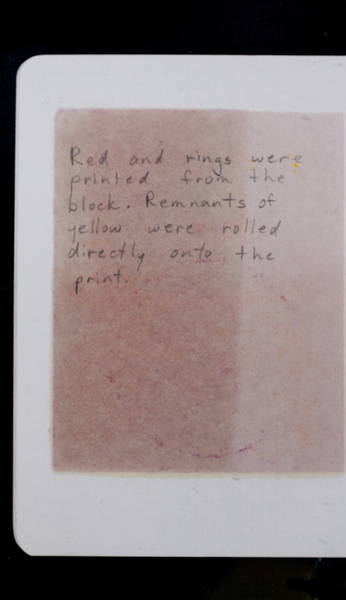 Red and rings were
printed from the
block. Remnants of
yellow were rolled
directly onto the
print.